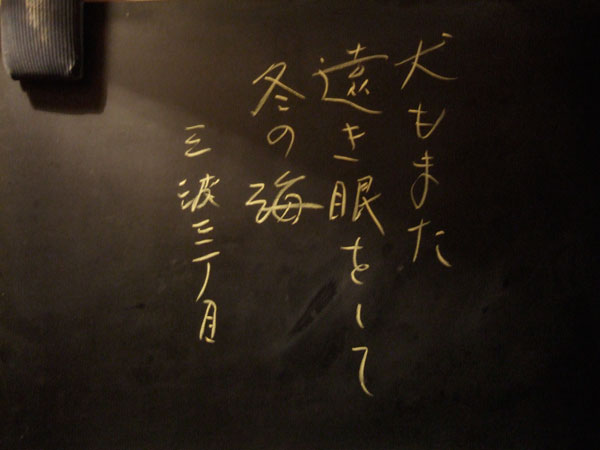 犬もまた
遠き眼をして
冬の海
三波三丁目